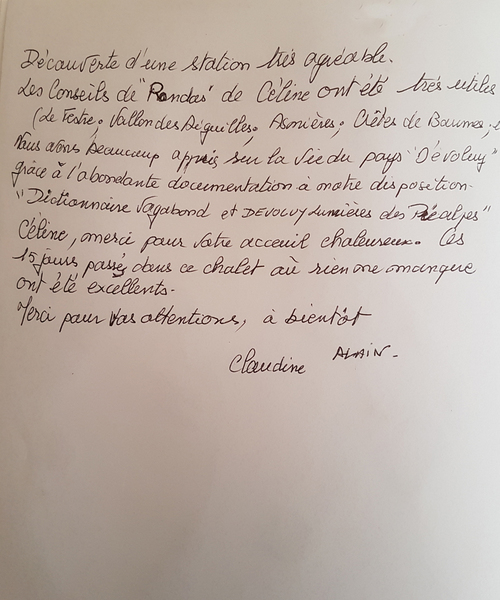 Découverte d'une station très agréable.
Les Conseils de "Randos" de Céline ont été très utiles
(Le Festre. Vallon des Aiguilles, Asnières, Crêtes de Baumes,
Nous avons beaucoup appris sur la vie du pays "Dévoluy"
grâce à l'abondante documentation à notre disposition-
"Dictionnaire Vagabond et DEVOLUY Lumières des Préalpes"
Céline, merci pour votre acceuil chaleureux. Ces
15 jours passés dans ce chalet où rien ne manque
ont été excellents.
Merci pour vos attentions, à bientôt
Claudine ALAIN-